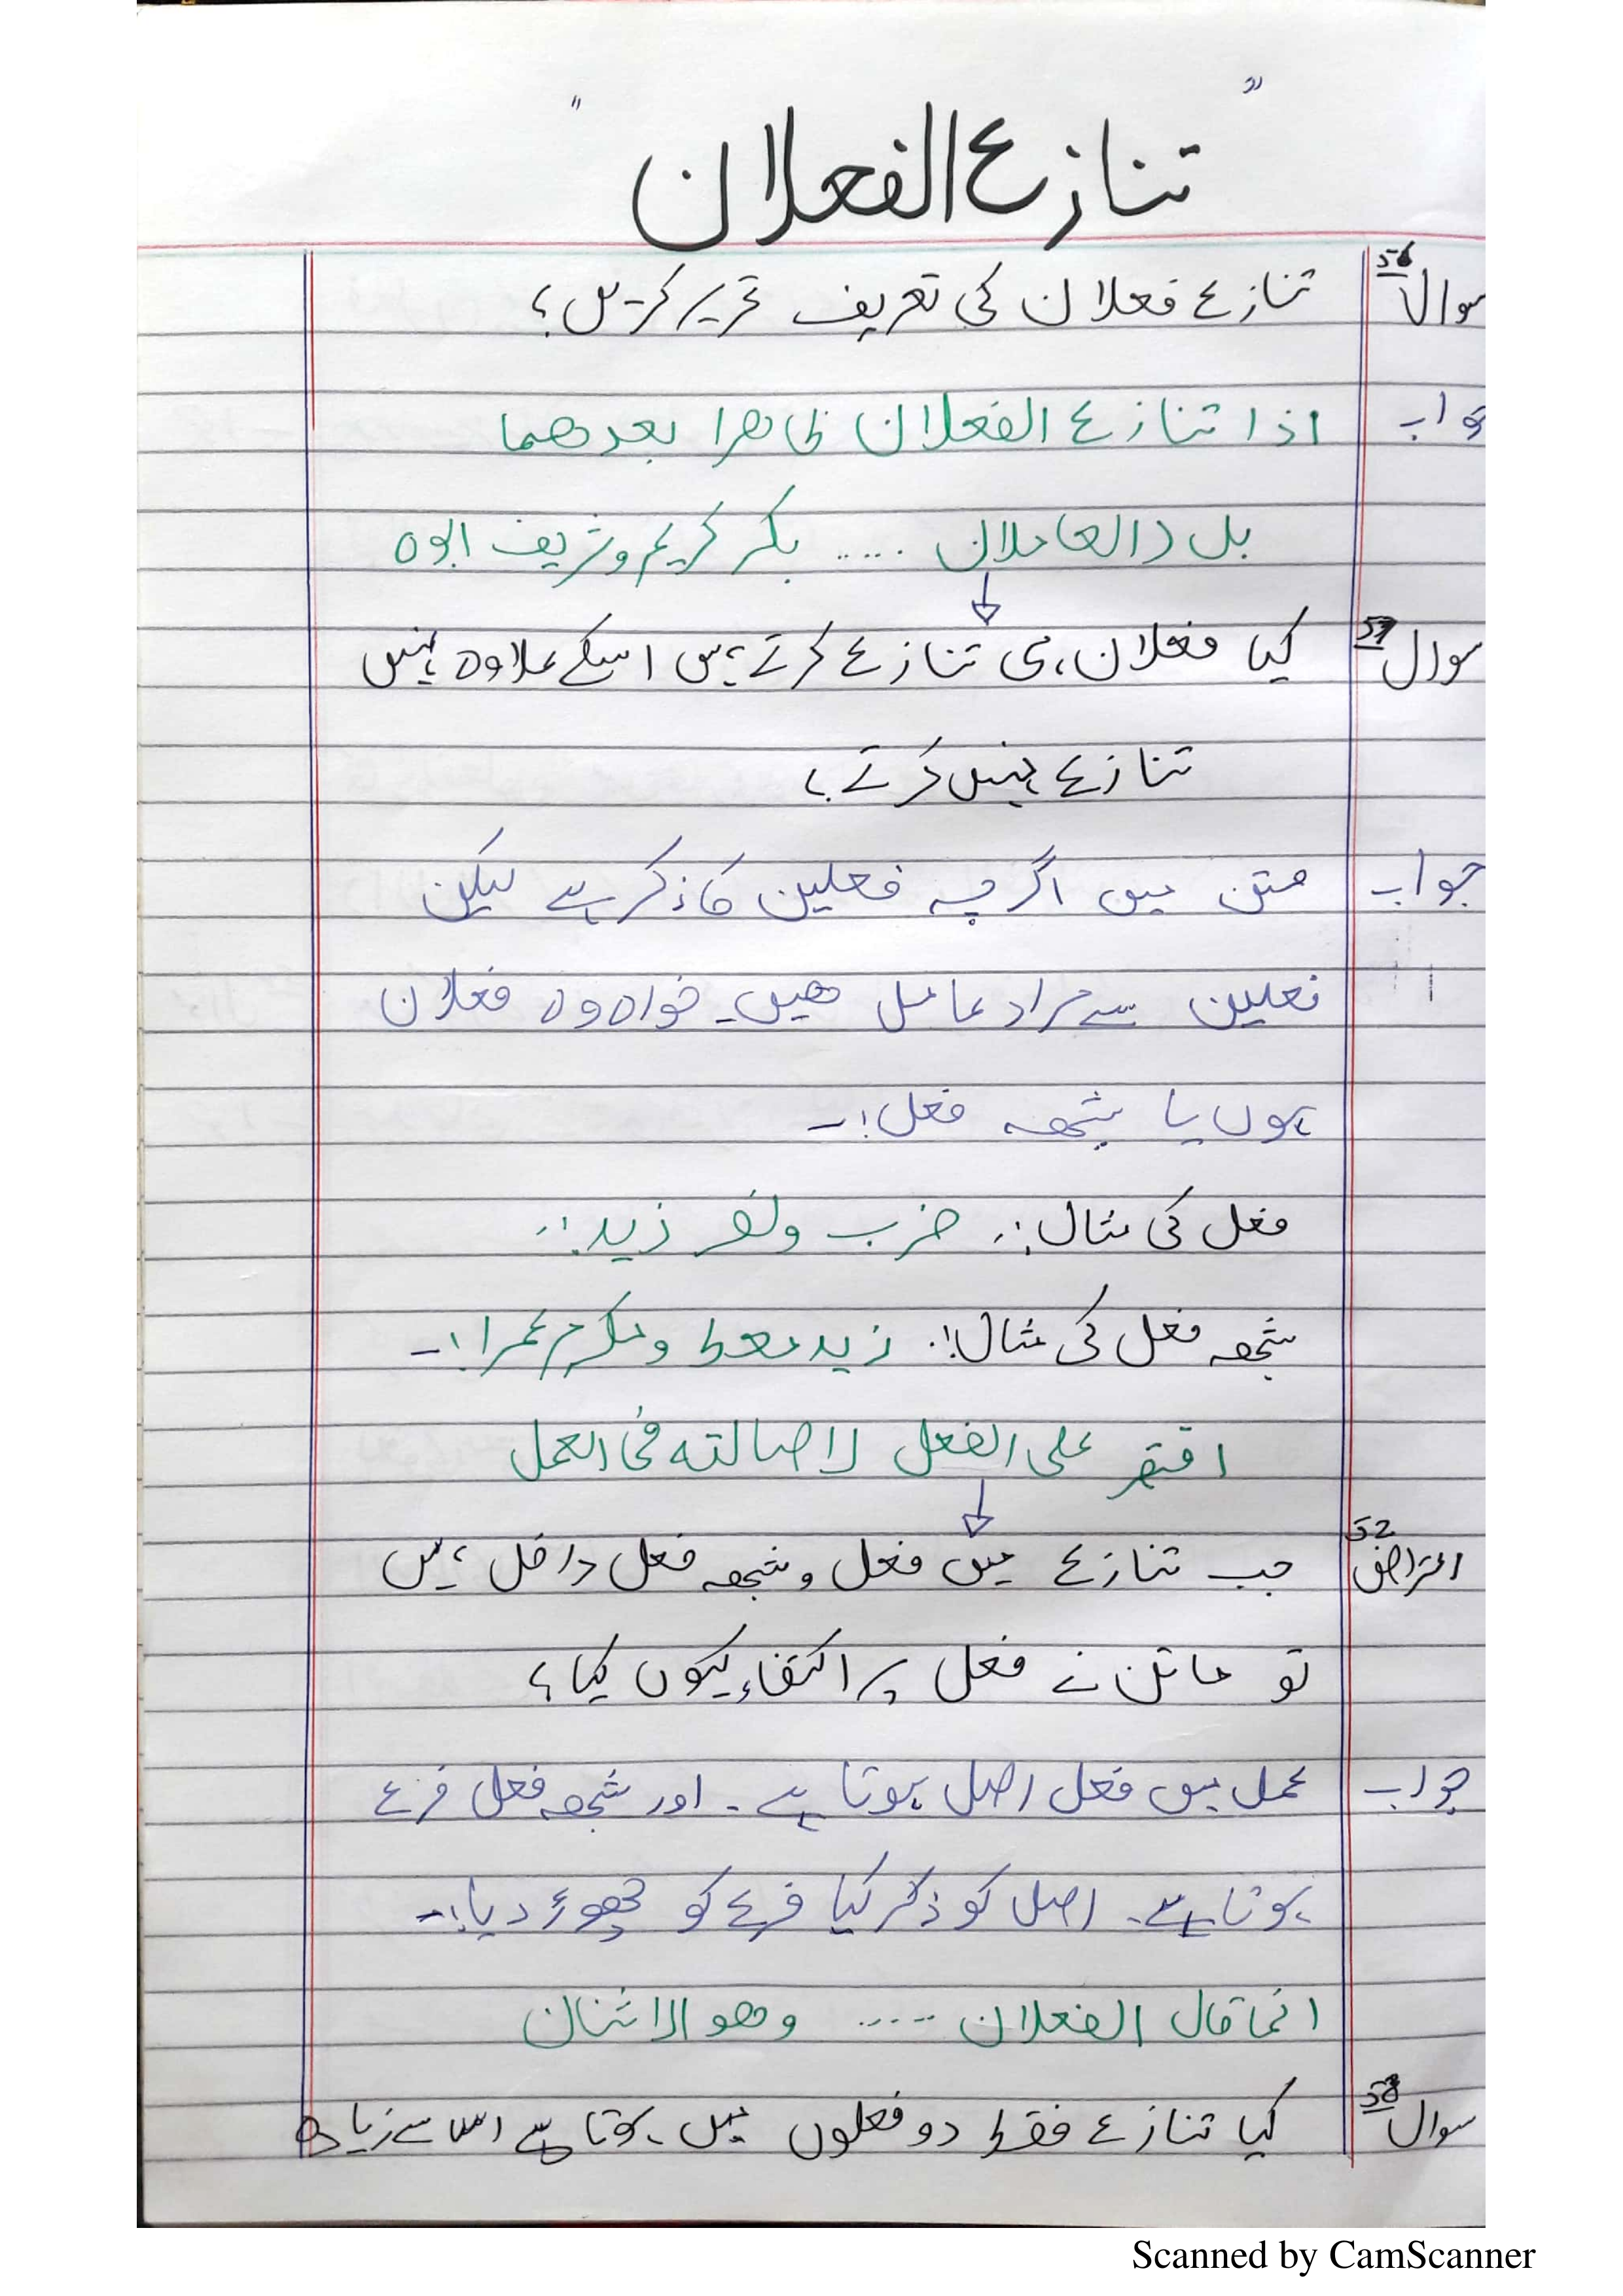 " تنازع الفعلان "
سوال 56 تنازع فعلان کی تعریف تحریر کریں؟
جواب اذا تنازع الفعلان ظاهرا بعدهما
بل العاملان ..... بكر كريم وشريف ابوه
سوال 57 کیا فعلان ہی تنازع کرتے ہیں اسکے علاوہ نہیں
تنازع نہیں کرتے؟
جواب متن میں اگرچہ فعلین کا ذکر ہے لیکن
فعلین سے مراد عامل ھیں۔ خواہ وہ فعلان
ہوں یا شبھہ فعل!۔
فعل کی مثال:۔ ضرب ونصر زيد:۔
شبھہ فعل کی مثال!۔ زيد معط ومكرم عمرا!۔
اقتصر على الفعل لاصالته فی العمل
اعتراض 52 جب تنازع میں فعل و شبھہ فعل داخل ہیں
تو ماتن نے فعل پر اکتفاء کیوں کیا؟
جواب عمل میں فعل اصل ہوتا ہے۔ اور شبھہ فعل فرع
ہوتا ہے۔ اصل کو ذکر کیا فرع کو چھوڑ دیا!۔
انما قال الفعلان ..... وهو الاثنان
سوال 58 کیا تنازع فقط دو فعلوں میں ہوتا ہے اس سے زیادہ
Scanned by CamScanner